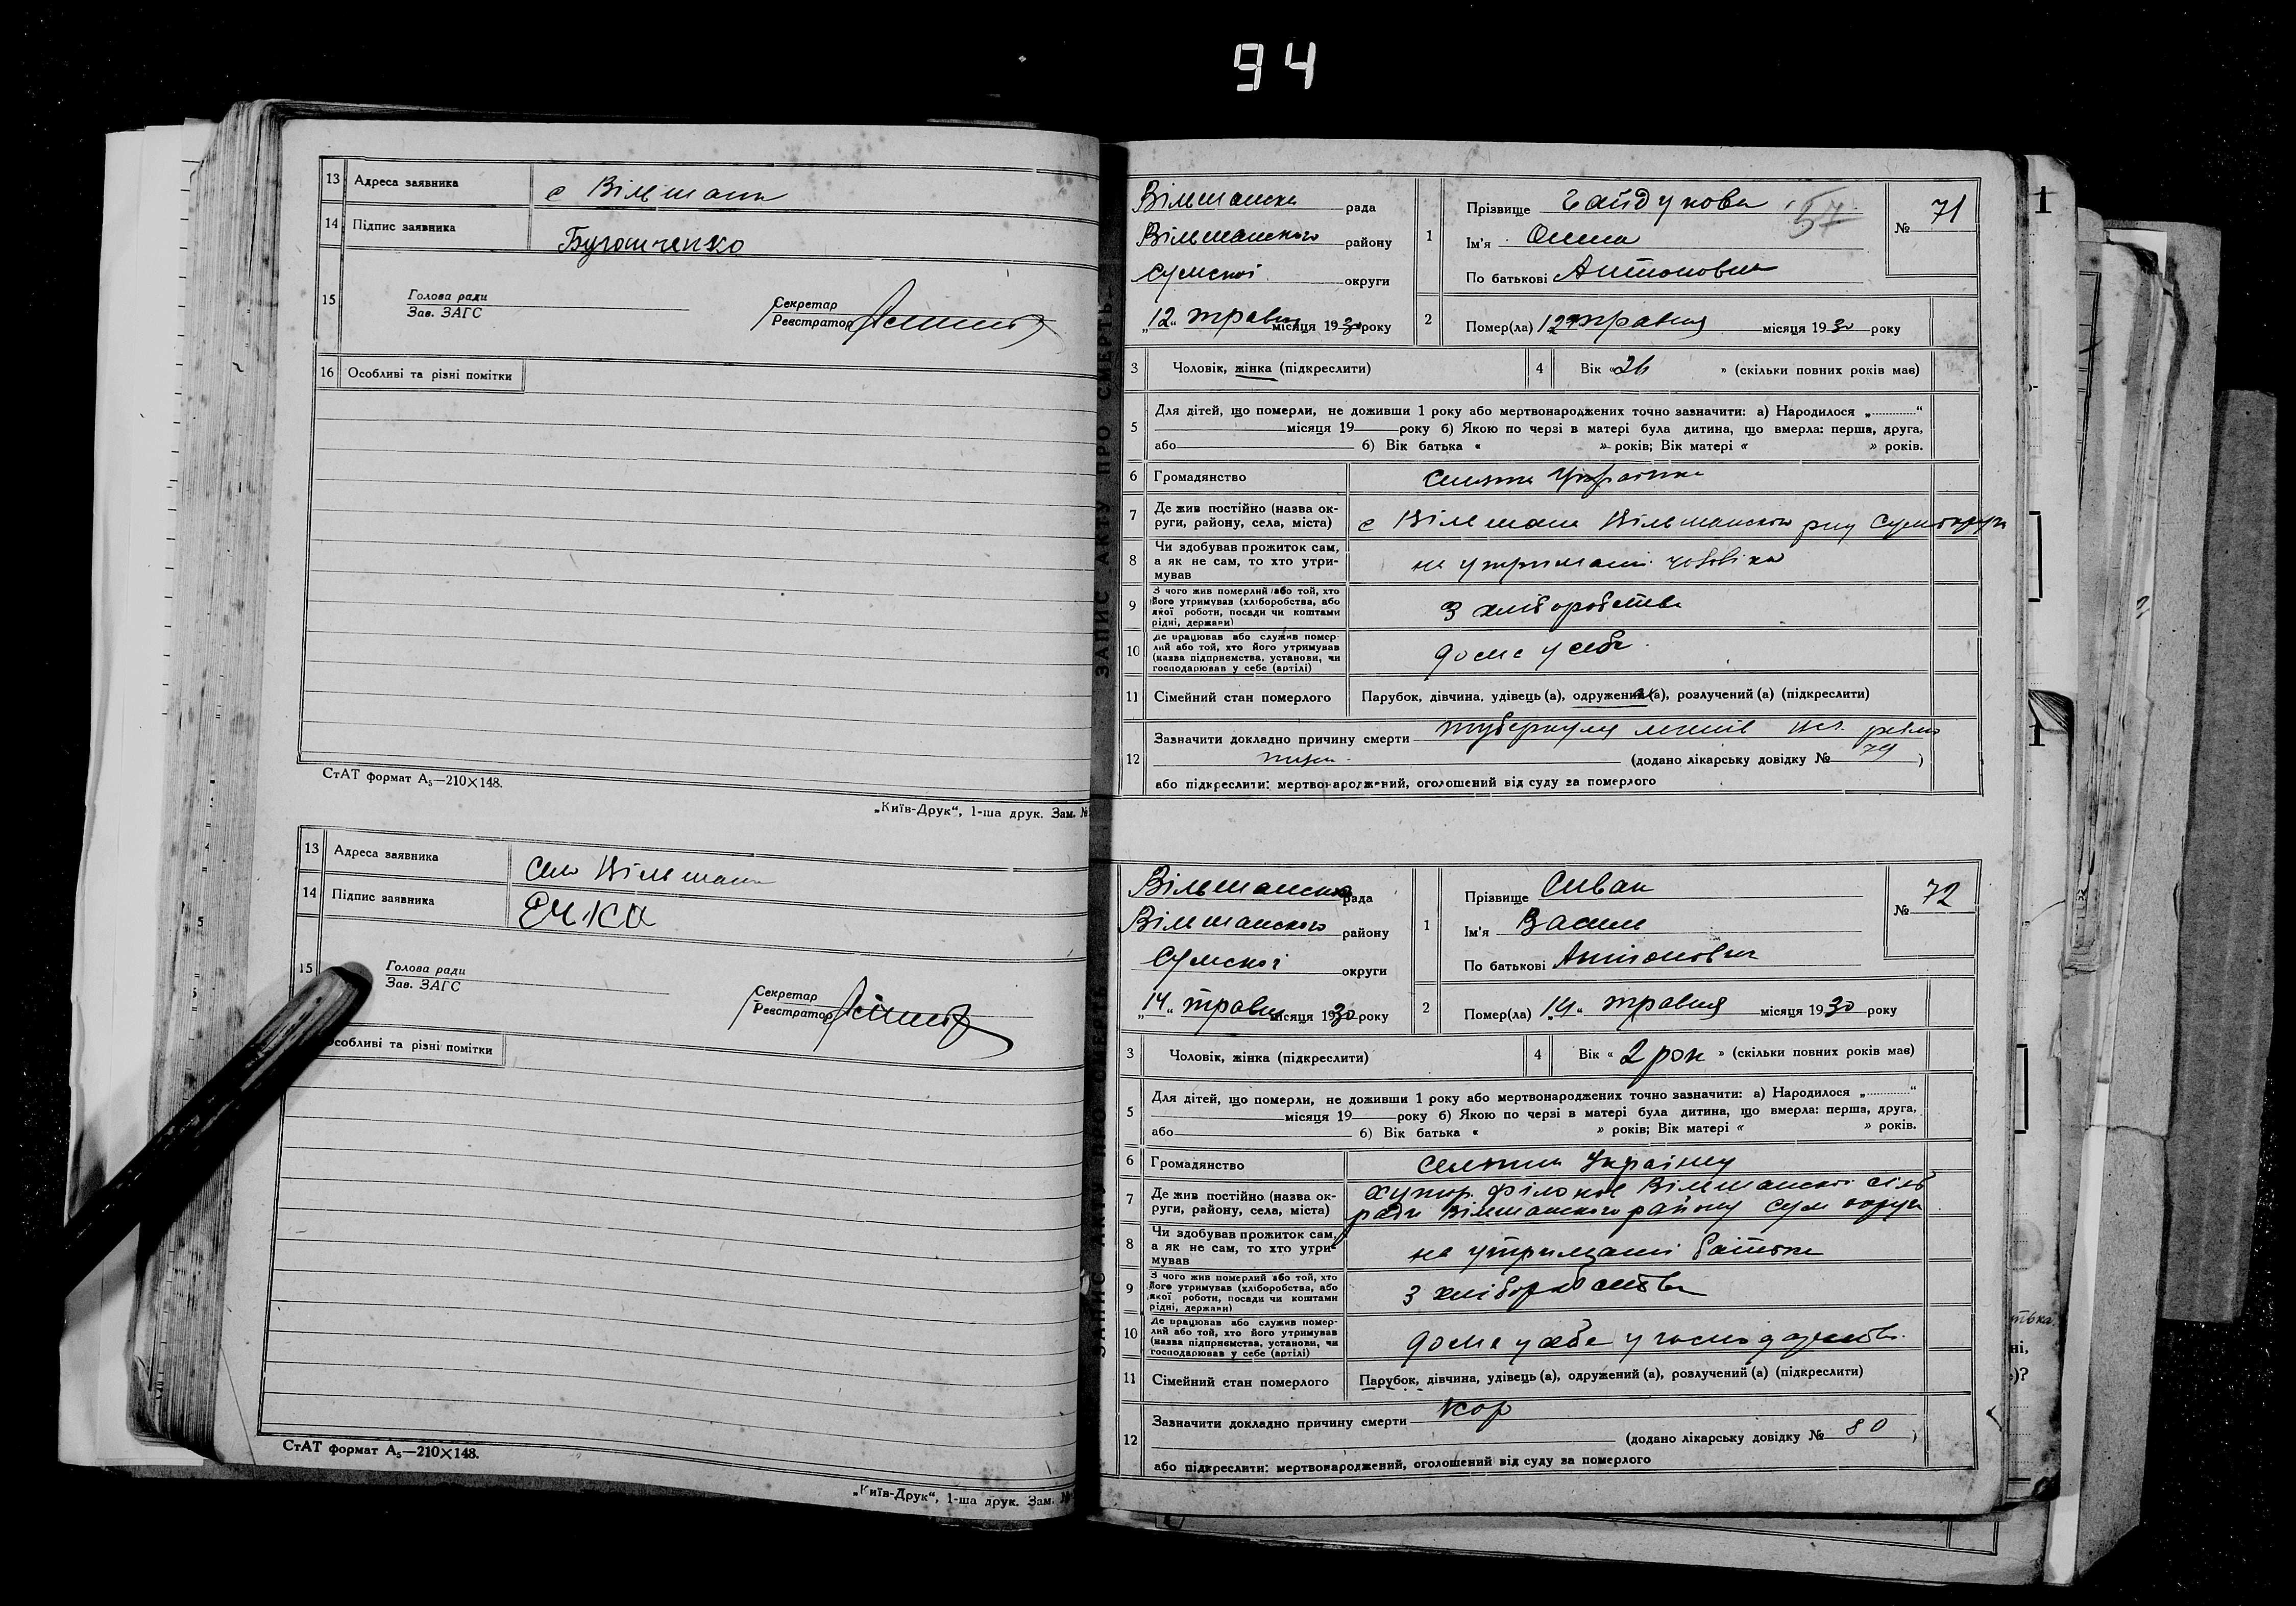 94
13 Адреса заявника с Вільшана
14 Підпис заявника
15 Голова ради
Зав. ЗАГС
Секретар
Реєстратор
16 Особливі та різні помітки
СтАТ формат А₅—210×148.
„Київ-Друк“, 1-ша друк. Зам. №
13 Адреса заявника Село Вільшана
14 Підпис заявника
15 Голова ради
Зав. ЗАГС
Секретар
Реєстратор
Особливі та різні помітки
СтАТ формат А₅—210×148.
„Київ-Друк“, 1-ша друк. Зам. №
ЗАПИС АКТУ ПРО СМЕРТЬ
Вільшанська рада
Вільшанського району
Сумської округи
„12“ травня місяця 1930 року
1 Прізвище Гайдукова
57
Ім'я
По батькові Антоновна
№ 71
2 Помер(ла) 12 травня місяця 1930 року
3 Чоловік, жінка (підкреслити)
4 Вік «26 » (скільки повних років має)
5 Для дітей, що померли, не доживши 1 року або мертвонароджених точно зазначити: а) Народилося „............“
місяця 19 року б) Якою по черзі в матері була дитина, що вмерла: перша, друга,
або б) Вік батька « » років; Вік матері « » років.
6 Громадянство
7 Де жив постійно (назва ок-
руги, району, села, міста) с Вільшана Вільшанського р-ну
8 Чи здобував прожиток сам,
а як не сам, то хто утри-
мував на утриманні чоловіка
9 З чого жив померлий або той, хто
його утримував (хліборобства, або
якої роботи, посади чи коштами
рідні, держави) з хліборобства
10 Де працював або служив помер-
лий або той, хто його утримував
(назва підприємства, установи, чи
господарював у себе (артілі) дома у себе
11 Сімейний стан померлого Парубок, дівчина, удівець (а), одружений (а), розлучений (а) (підкреслити)
12 Зазначити докладно причину смерти
(додано лікарську довідку № 79 )
або підкреслити: мертвонароджений, оголошений від суду за померлого
ЗАПИС АКТУ ПРО СМЕРТЬ
Вільшанська рада
Вільшанського району
Сумської округи
„14“ травня місяця 1930 року
1 Прізвище Сиван
Ім'я Василь
По батькові Антонович
№ 72
2 Помер(ла) „14“ травня місяця 1930 року
3 Чоловік, жінка (підкреслити)
4 Вік « 2 рок » (скільки повних років має)
5 Для дітей, що померли, не доживши 1 року або мертвонароджених точно зазначити: а) Народилося „............“
місяця 19 року б) Якою по черзі в матері була дитина, що вмерла: перша, друга,
або б) Вік батька « » років; Вік матері « » років.
6 Громадянство
7 Де жив постійно (назва ок-
руги, району, села, міста) хутор Вільшанської сіль
ради Вільшанського району Сум округи
8 Чи здобував прожиток сам,
а як не сам, то хто утри-
мував на утриманні батька
9 З чого жив померлий або той, хто
його утримував (хліборобства, або
якої роботи, посади чи коштами
рідні, держави) з хліборобства
10 Де працював або служив помер-
лий або той, хто його утримував
(назва підприємства, установи, чи
господарював у себе (артілі) дома у себе у господарстві
11 Сімейний стан померлого Парубок, дівчина, удівець (а), одружений (а), розлучений (а) (підкреслити)
12 Зазначити докладно причину смерти Кор
(додано лікарську довідку № 80 )
або підкреслити: мертвонароджений, оголошений від суду за померлого